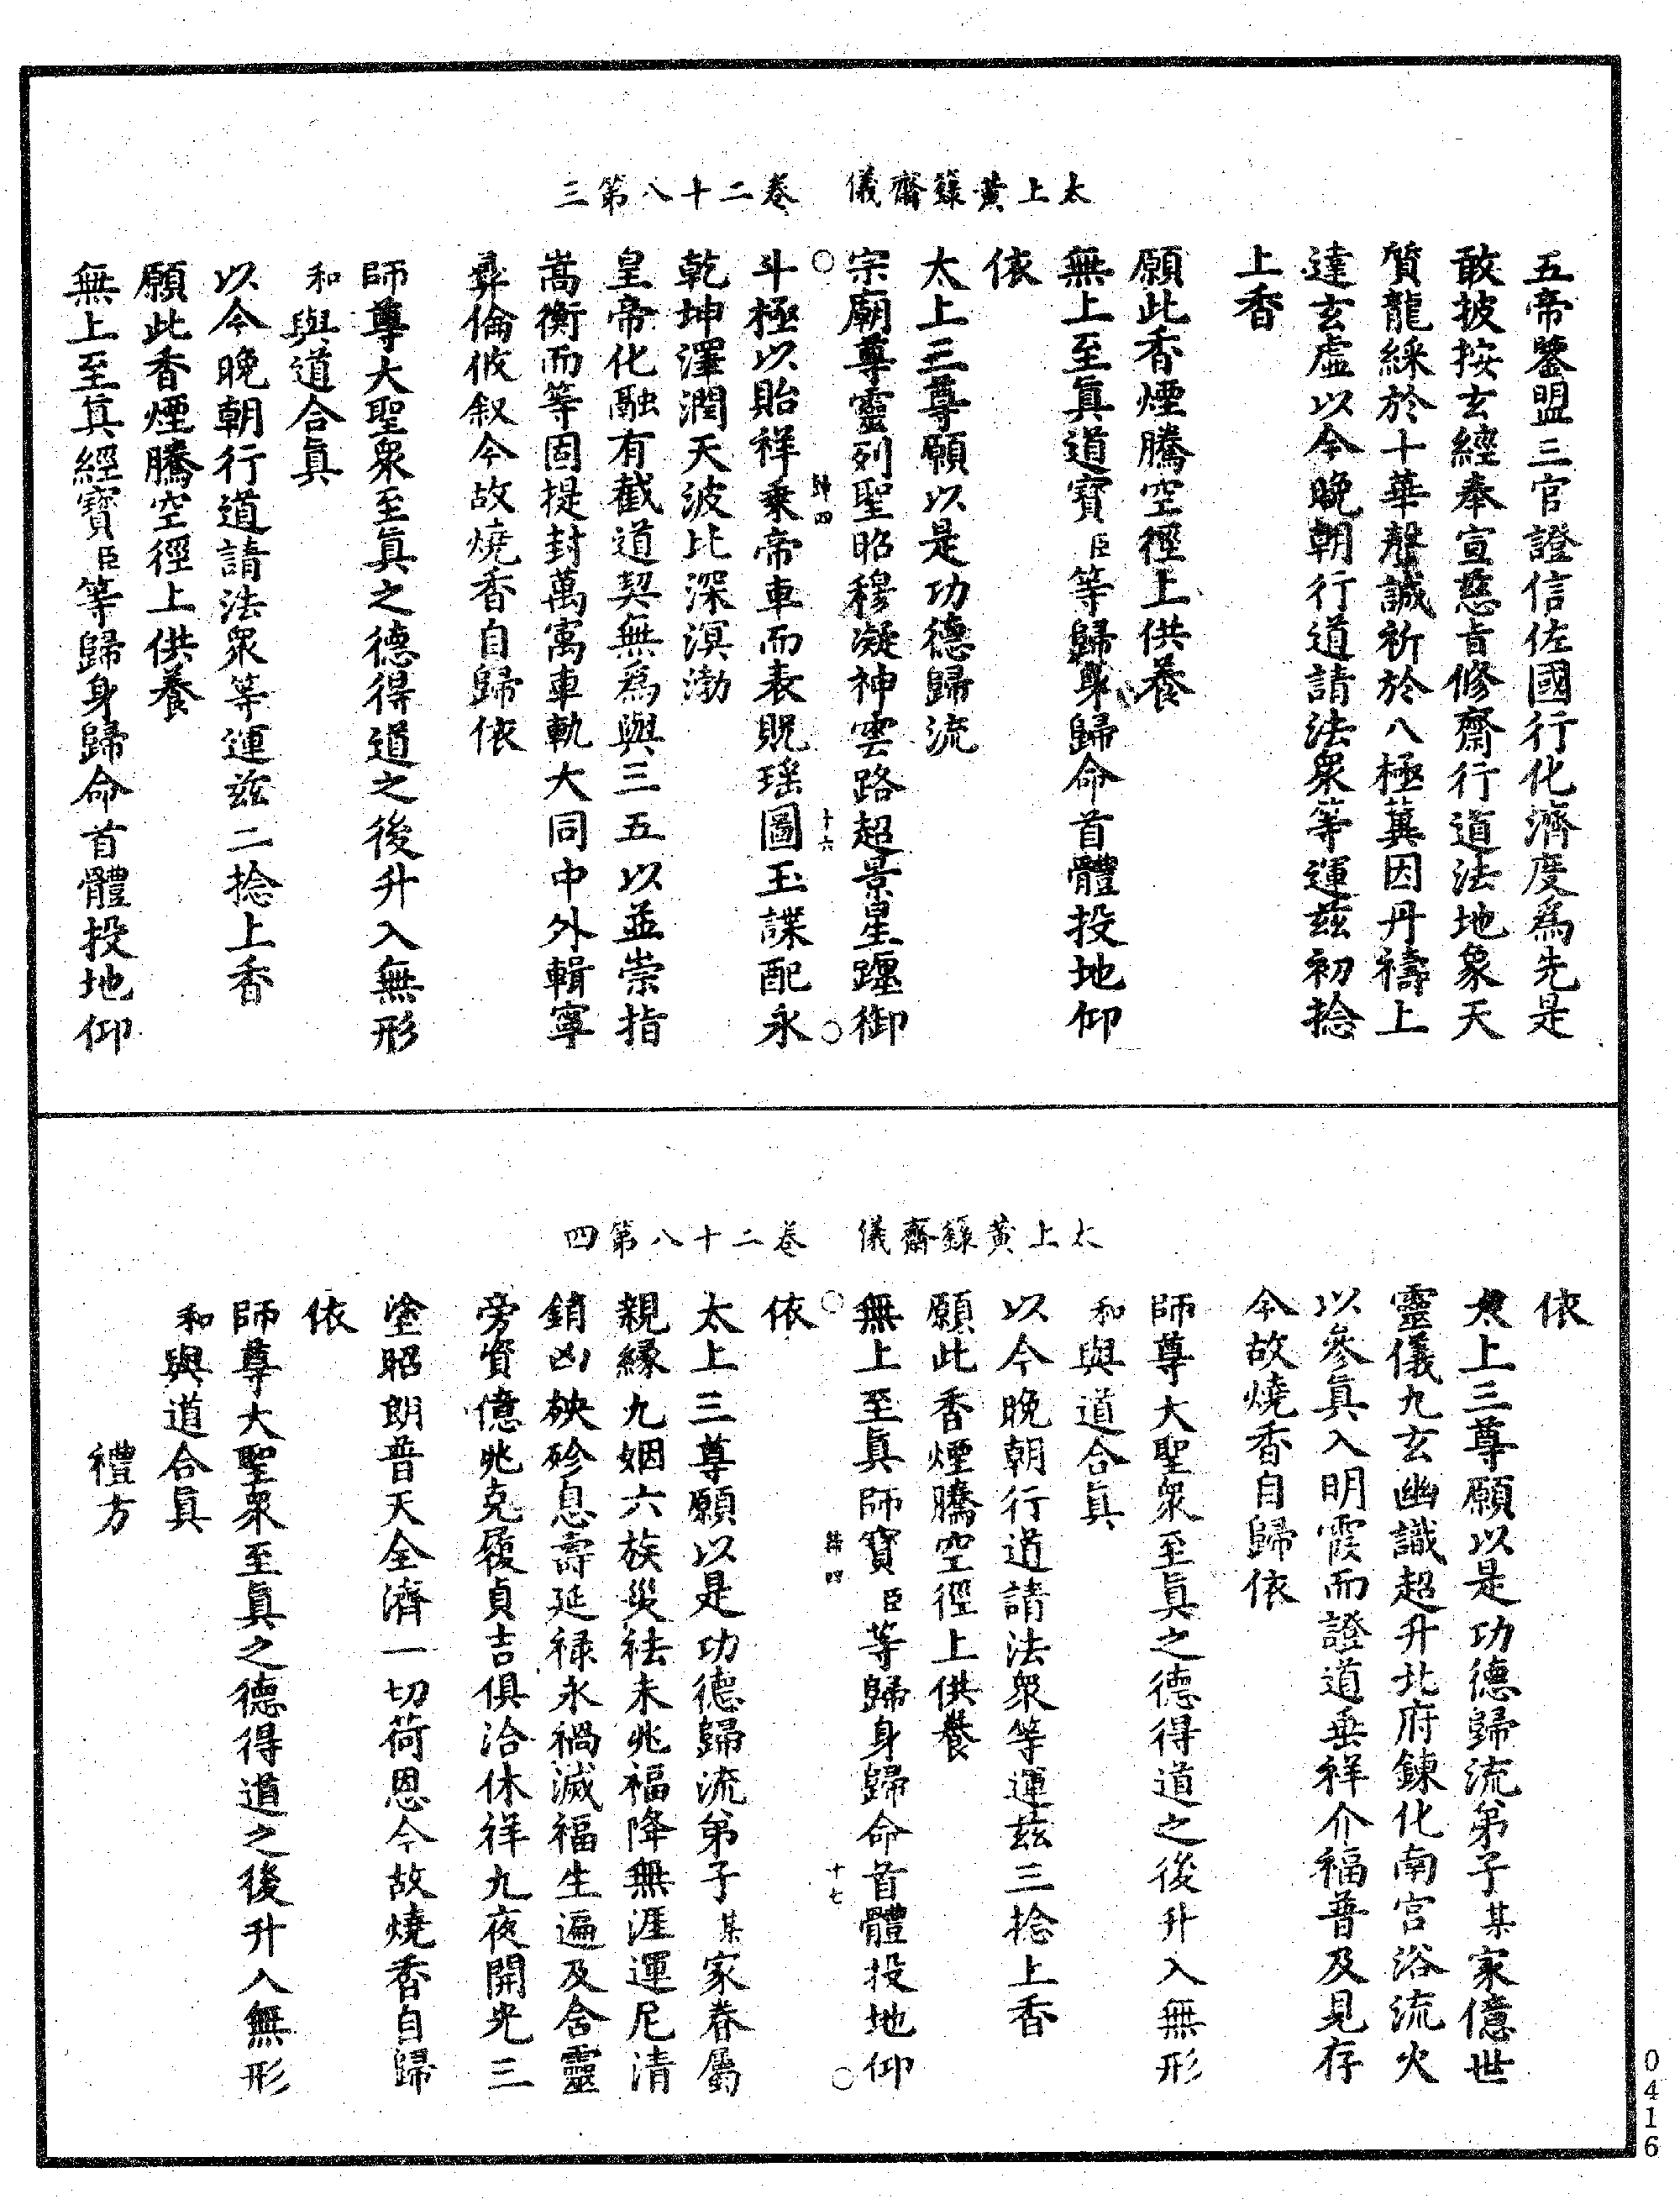 太上黃籙齋儀　卷二十八第三
五帝鑒盟三官證信佐國行化濟度為先是
敢披按玄經奉宣慈旨修齋行道法地象天
質龍綵於十華罄誠祈於八極蓂因丹禱上
達玄虛以今晚朝行道請法眾等運茲初捻
上香
願此香煙騰空徑上供養
無上至真道寶臣等歸身歸命首體投地仰
依
太上三尊願以是功德歸流
宗廟尊靈列聖昭穆凝神雲路超景星躔御
歸四　十六
斗極以貽祥乘帝車而表貺瑤圖玉諜配永
乾坤澤潤天波比深溟渤
皇帝化融有截道契無為與三五以並崇指
嵩衡而等固提封萬寓車軌大同中外輯寧
彝倫攸敘今故燒香自歸依
師尊大聖眾至真之德得道之後升入無形
和與道合真
以今晚朝行道請法眾等運茲二捻上香
願此香煙騰空徑上供養
無上至真經寶臣等歸身歸命首體投地仰
太上黃籙齋儀　卷二十八第四
依
太上三尊願以是功德歸流弟子某家億世
靈儀九玄幽識超升北府鍊化南宮浴流火
以參真入明霞而證道垂祥介福普及見存
今故燒香自歸依
師尊大聖眾至真之德得道之後升入無形
和與道合真
以今晚朝行道請法眾等運茲三捻上香
願此香煙騰空徑上供養
無上至真師寶臣等歸身歸命首體投地仰
歸四　十七
依
太上三尊願以是功德歸流弟子某家眷屬
親緣九姻六族災袪未兆福降無涯運厄清
銷凶殃殄息壽延祿永禍滅福生遍及含靈
旁資億兆克履貞吉俱洽休祥九夜開光三
塗昭朗普天全濟一切荷恩今故燒香自歸
依
師尊大聖眾至真之德得道之後升入無形
和與道合真
禮方
0416